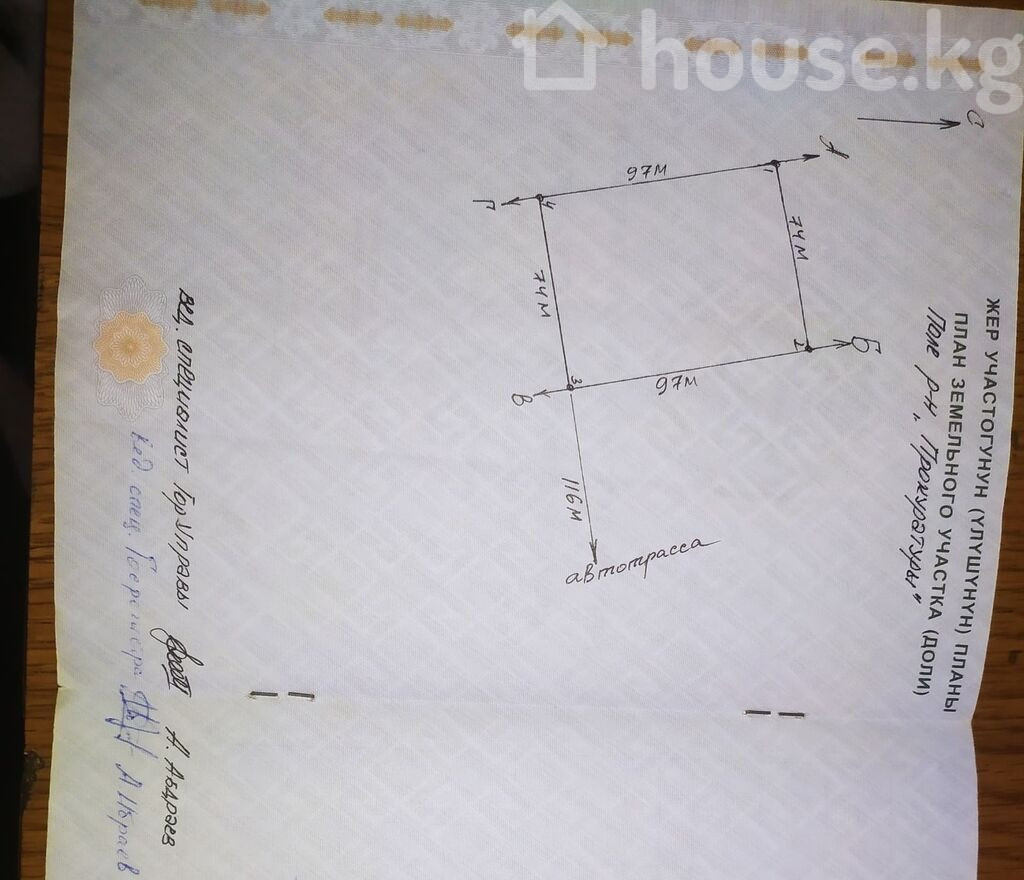 house.kg
ЖЕР УЧАСТОГУНУН (ҮЛҮШҮНҮН) ПЛАНЫ
ПЛАН ЗЕМЕЛЬНОГО УЧАСТКА (ДОЛИ)
Поле р-н „Прокуратуры"
С
А
Б
1
74м
2
97м
97м
4
74м
3
Г
В
116м
автотрасса
Вед. специалист ГорУправы А. Абдраев
Вед. спец. Госрегистра